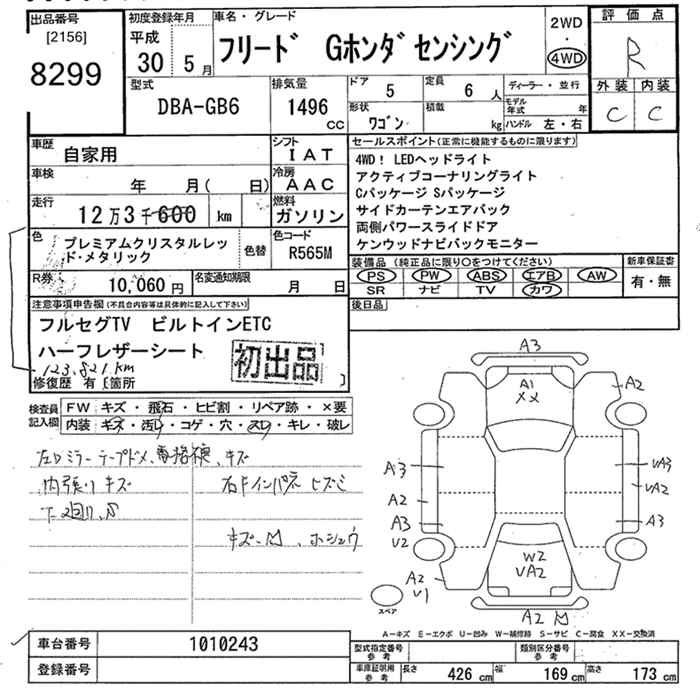 出品番号 初度登録年月 車名・グレード 2WD 評価点
[2156] 平成 フリード Gホンダセンシング ・ R
8299 30年 5月 4WD 外装 内装
型式 排気量 ドア 5 定員 6人 ディーラー・並行 C C
DBA-GB6 1496cc 形状 ワゴン 積載 kg モデル年式 年
ハンドル 左・右
車歴 自家用 シフト IAT セールスポイント(正常に機能するものに限ります)
車検 年 月( 日) 冷房 AAC 4WD! LEDヘッドライト
走行 12万3千600 km 燃料 ガソリン アクティブコーナリングライト
Cパッケージ Sパッケージ
サイドカーテンエアバック
両側パワースライドドア
ケンウッドナビバックモニター
色 プレミアムクリスタルレッ 色替 色コード
ド・メタリック R565M
装備品(純正品に限り○をつけてください) 新車保証書
R券 10,060円 名変通知期限 月 日 PS PW ABS エアB AW 有・無
SR ナビ TV カワ
注意事項申告欄(不具合内容等は具体的に記入して下さい) 後日品
フルセグTV ビルトインETC
ハーフレザーシート 初出品
123,821km
修復歴 有[箇所 ]
検査員 FW キズ・飛石・ヒビ割・リペア跡・×要
記入欄 内装 キズ・汚レ・コゲ・穴・スレ・キレ・破レ
左Dミラー テープドメ、電格不良、キズ
内張りキズ 右Fインパネ ヒズミ
下廻り、S
キズ、凹、ホシュウ
A3
A1 A2
XX
A3 UA3
A2 UA2
A3 A3
U2
W2
UA2
A2
U1
スペア
A2 凹
A-キズ E-エクボ U-凹み W-補修跡 S-サビ C-腐食 XX-交換済
車台番号 1010243 型式指定番号 参考 類別区分番号 参考
登録番号 車庫証明用 参考 長さ 426 cm 幅 169 cm 高さ 173 cm